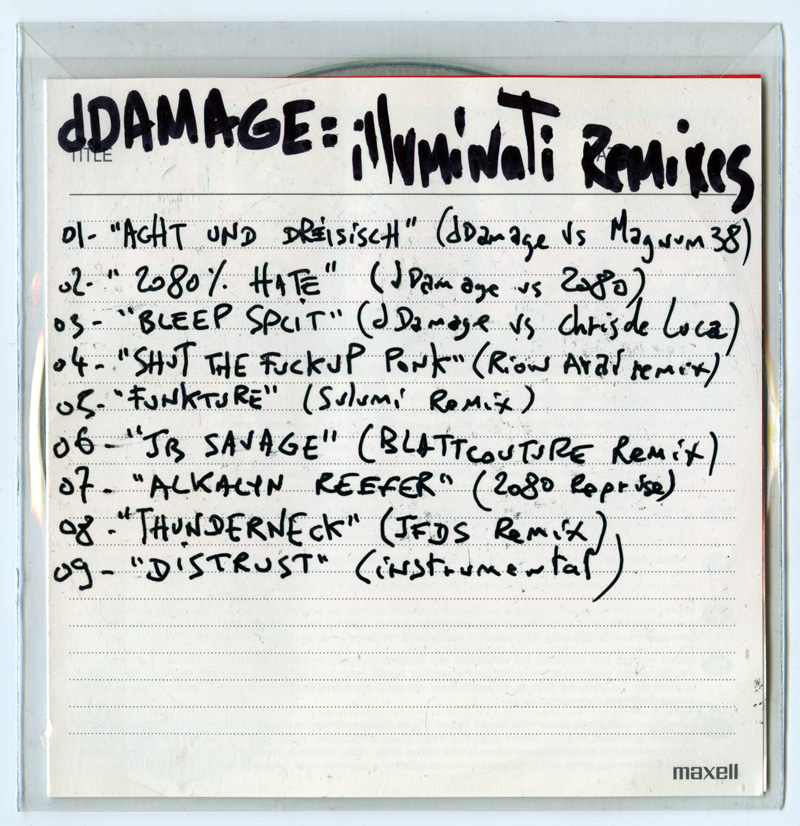 dDAMAGE: illuminati Remixes
TITLE
01- "ACHT UND DREISISCH" (dDamage vs Magnum 38)
02- "2080% HATE" (dDamage vs 2080)
03- "BLEEP SPLIT" (dDamage vs Chris de Luca)
04- "SHUT THE FUCKUP PONK" (Riow Arai remix)
05- "FUNKTURE" (Sulumi Remix)
06- "JB SAVAGE" (BLATTCOUTURE Remix)
07- "ALKALYN REEFER" (2080 Reprise)
08- "THUNDERNECK" (JFDS Remix)
09- "DISTRUST" (instrumental)
maxell